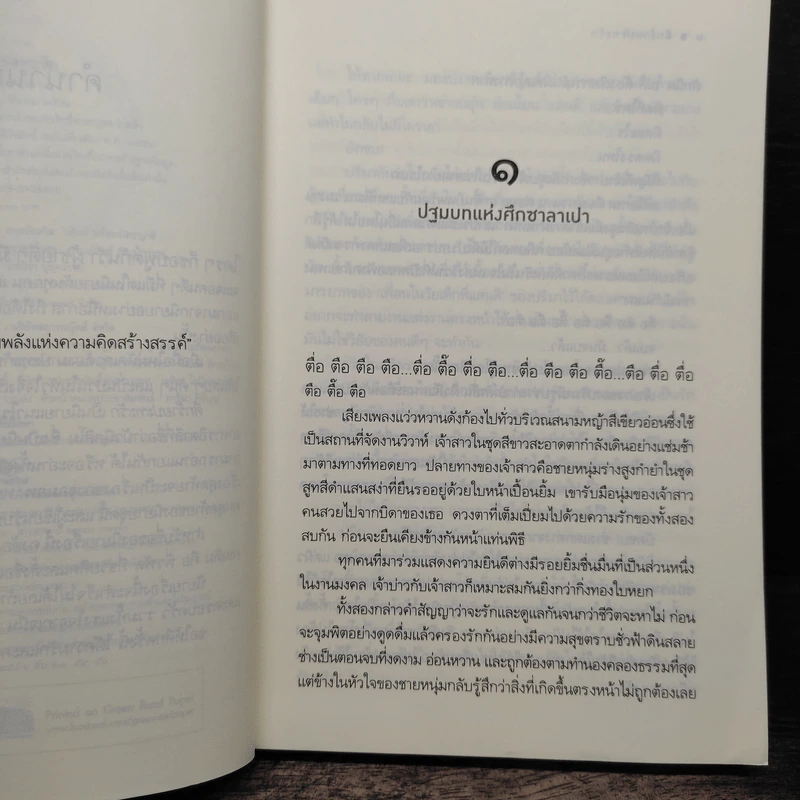 พลังแห่งความคิดสร้างสรรค์"
๑
ปฐมบทแห่งศึกซาลาเปา
ตื่อ ตือ ตือ ตือ...ตื่อ ตื๊อ ตื่อ ตือ...ตื่อ ตือ ตือ ตื๊อ...ตือ ตื่อ ตื่อ
ตือ ตื๊อ ตือ
เสียงเพลงแว่วหวานดังก้องไปทั่วบริเวณสนามหญ้าสีเขียวอ่อนซึ่งใช้
เป็นสถานที่จัดงานวิวาห์ เจ้าสาวในชุดสีขาวสะอาดตากำลังเดินอย่างแช่มช้า
มาตามทางที่ทอดยาว ปลายทางของเจ้าสาวคือชายหนุ่มร่างสูงกำยำในชุด
สูทสีดำแสนสง่าที่ยืนรออยู่ด้วยใบหน้าเปื้อนยิ้ม เขารับมือนุ่มของเจ้าสาว
คนสวยไปจากบิดาของเธอ ดวงตาที่เต็มเปี่ยมไปด้วยความรักของทั้งสอง
สบกัน ก่อนจะยืนเคียงข้างกันหน้าแท่นพิธี
ทุกคนที่มาร่วมแสดงความยินดีต่างมีรอยยิ้มชื่นมื่นที่เป็นส่วนหนึ่ง
ในงานมงคล เจ้าบ่าวกับเจ้าสาวก็เหมาะสมกันยิ่งกว่ากิ่งทองใบหยก
ทั้งสองกล่าวคำสัญญาว่าจะรักและดูแลกันจนกว่าชีวิตจะหาไม่ ก่อน
จะจุมพิตอย่างดูดดื่มแล้วครองรักกันอย่างมีความสุขตราบชั่วฟ้าดินสลาย
ช่างเป็นตอนจบที่งดงาม อ่อนหวาน และถูกต้องตามทำนองคลองธรรมที่สุด
แต่ข้างในหัวใจของชายหนุ่มกลับรู้สึกว่าสิ่งที่เกิดขึ้นตรงหน้าไม่ถูกต้องเลย